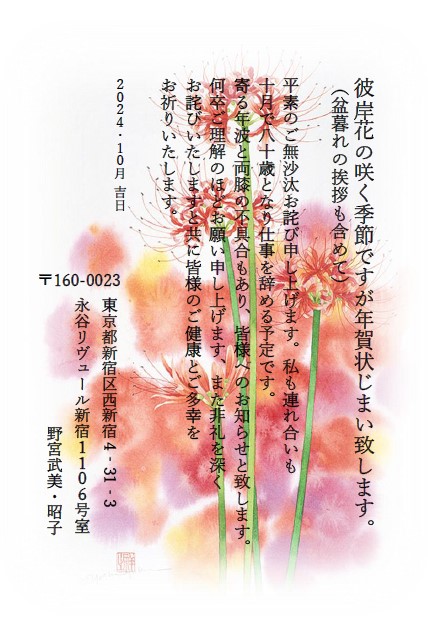 彼岸花の咲く季節ですが年賀状じまい致します。
（盆暮れの挨拶も含めて）
平素のご無沙汰お詫び申し上げます。私も連れ合いも
十月で八十歳となり仕事を辞める予定です。
寄る年波と両膝の不具合もあり、皆様へのお知らせと致します。
何卒ご理解のほどお願い申し上げます、また非礼を深く
お詫びいたしますと共に皆様のご健康とご多幸を
お祈りいたします。
2024・10月 吉日
〒160-0023
東京都新宿区西新宿4-31-3
永谷リヴュール新宿1106号室
野宮武美・昭子